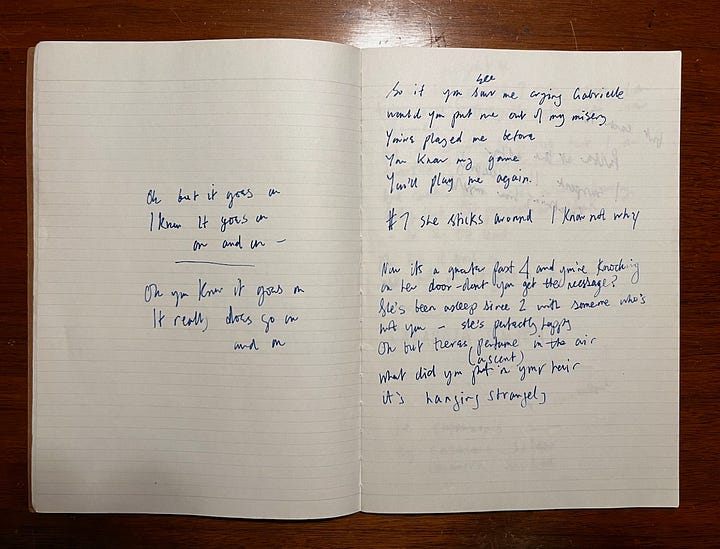 Oh but it goes on
I know it goes on
on and on –
Oh you know it goes on
It really does go on
and on
see
So if you saw me crying Gabrielle
would you put me out of my misery
You've played me before
You know my game
You'll play me again.
#7 She sticks around I know not why
Now its a quarter past 4 and you're knocking
on her door – dont you get the message?
She's been asleep since 2 with someone who's
not you – she's perfectly happy
Oh but theres perfume in the air
(a scent)
what did you put in your hair
it's hanging strangely